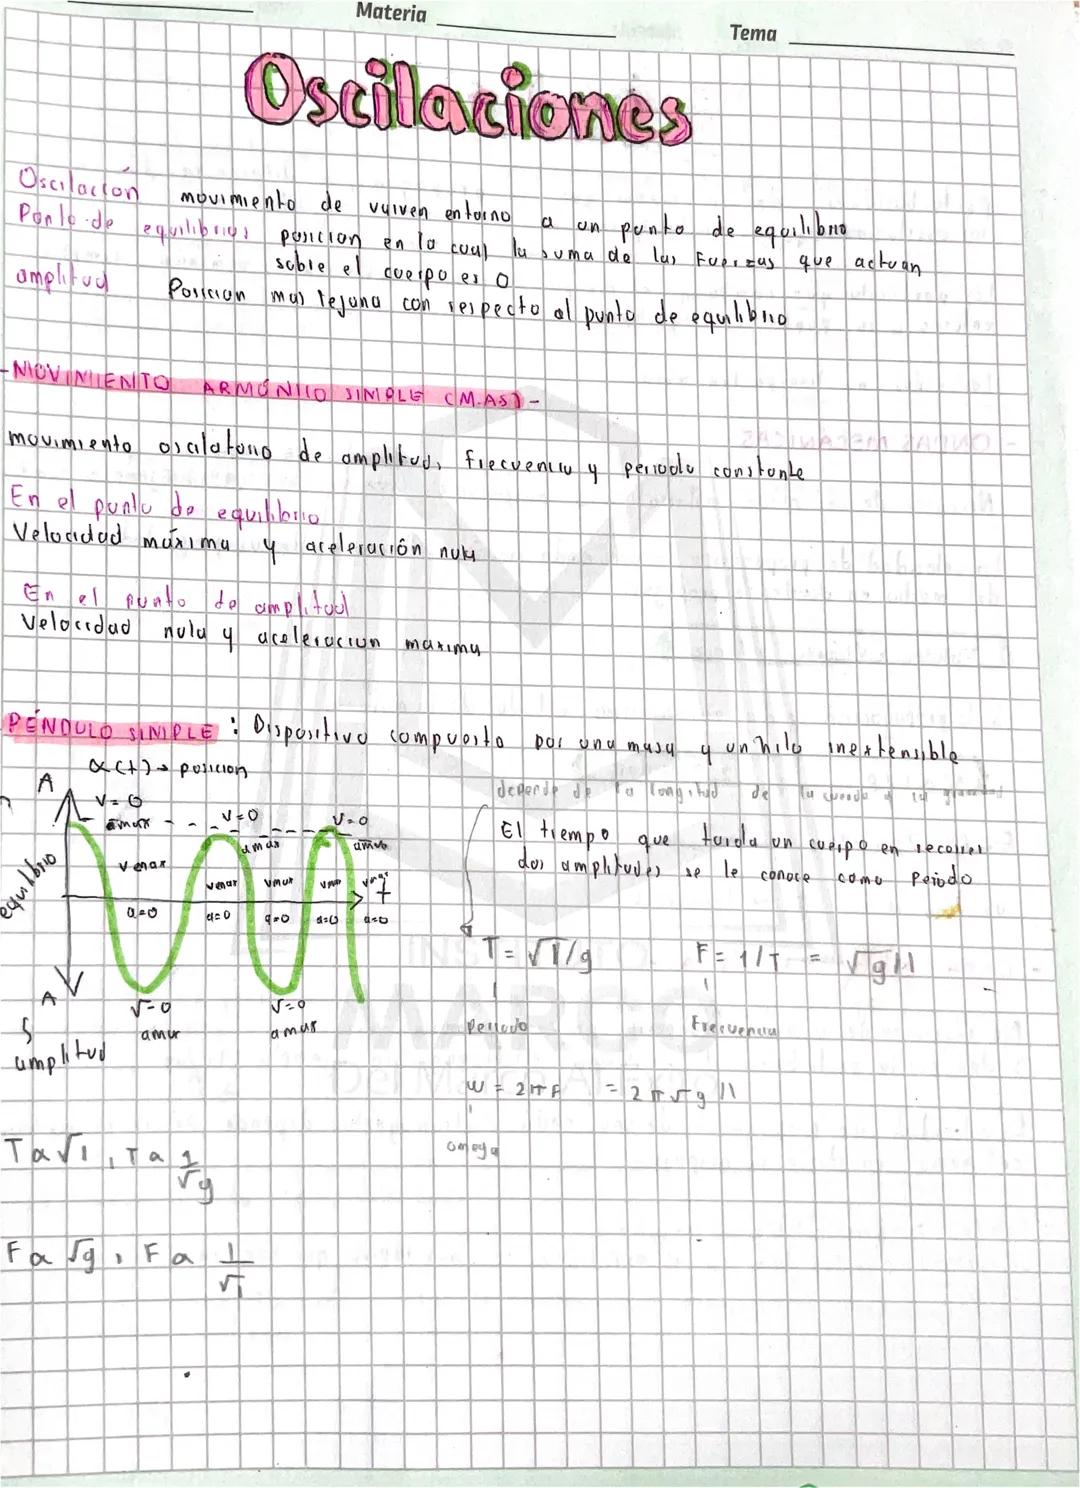 Materia
Tema
Oscilaciones
Oscilación movimiento de vaiven entorno a un punto de equilibrio
Punto de equilibrio: posicion en la cual la suma de las Fuerzas que actuan
sobre el cuerpo es 0
amplitud Posicion mas lejana con respecto al punto de equilibrio
-MOVIMIENTO ARMÓNICO SIMPLE (M.AS)-
movimiento oscilatorio de amplitud, frecuencia y periodo constante
En el punto de equilibrio
Velocidad máxima y aceleración nula
En el punto de amplitud
Velocidad nula y aceleracion maxima
PÉNDULO SIMPLE : Dispositivo compuesto por una masa y un hilo inextensible
x(t)→ posicion
depende de la longitud de la cuerda y la gravedad
A
V=0
amax
V=0
amax
V=0
El tiempo que tarda un cuerpo en recorrer
dos amplitudes se le conoce como Periodo
equilibrio
vmax
vmax
vmax
vmax
vmax
t
a=0
a=0
a=0
a=0
a=0
T= √l/g
F= 1/T = √g/l
A
V=0
amax
V=0
amax
Periodo
Frecuencia
amplitud
W = 2πF = 2π√g/l
omega
T α √l , T α 1/√g
F α √g , F α 1/√l
INSTITUTO
MARCO